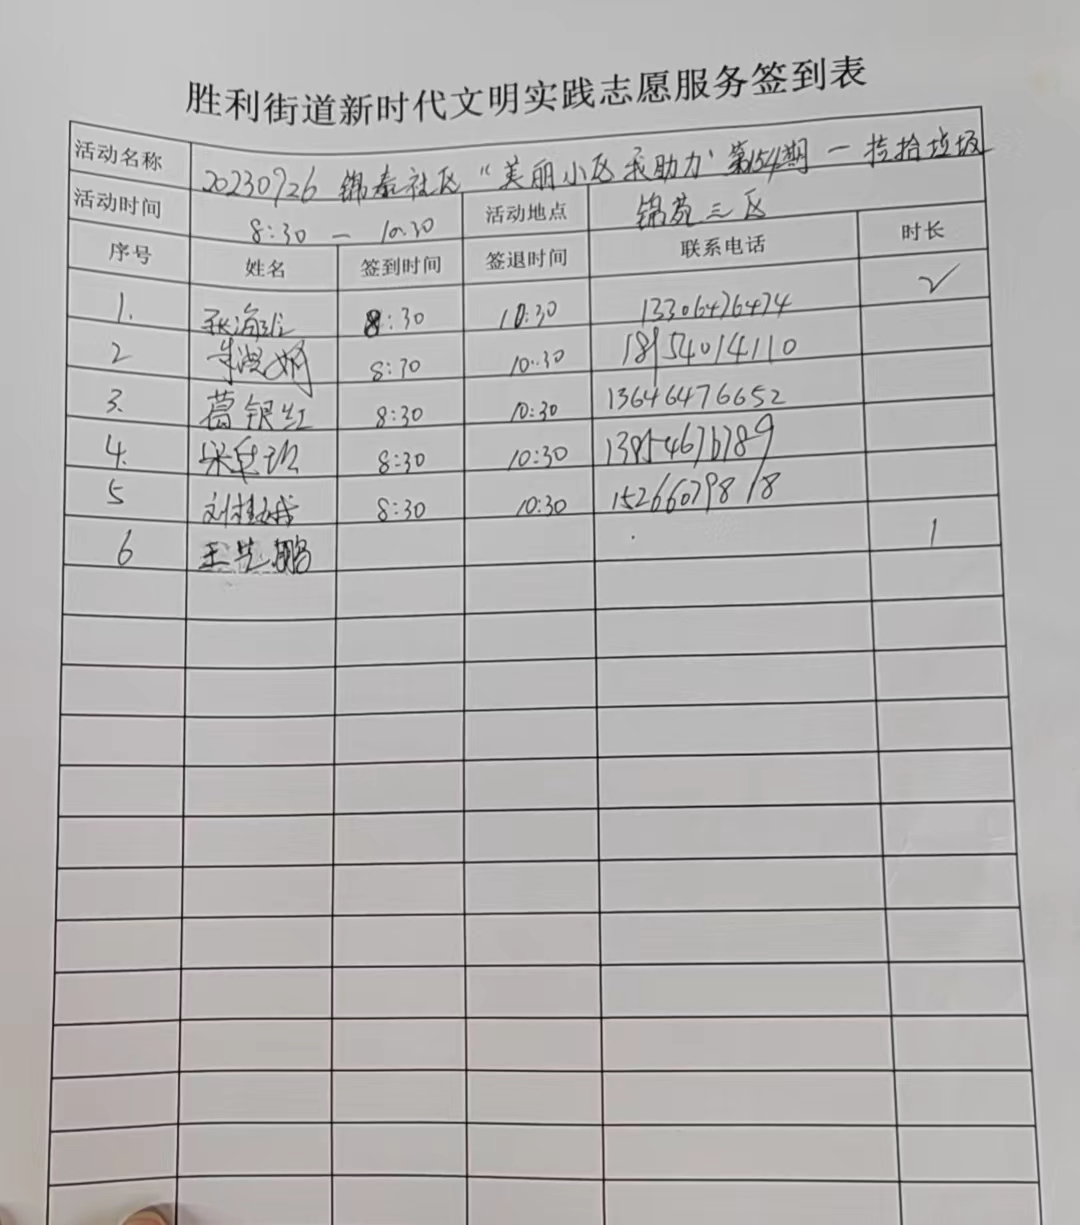 胜利街道新时代文明实践志愿服务签到表
活动名称 20230926 锦泰社区“美丽小区我助力”第154期 一 捡拾垃圾
活动时间 8:30 — 10:30 活动地点 锦苑三区
序号 姓名 签到时间 签退时间 联系电话 时长
1. 8:30 10:30 13306476474 ✓
2 8:30 10:30 18954014110
3. 葛银红 8:30 10:30 13646476652
4. 8:30 10:30
5 刘桂娥 8:30 10:30 15266079818
6 王先鹏 1